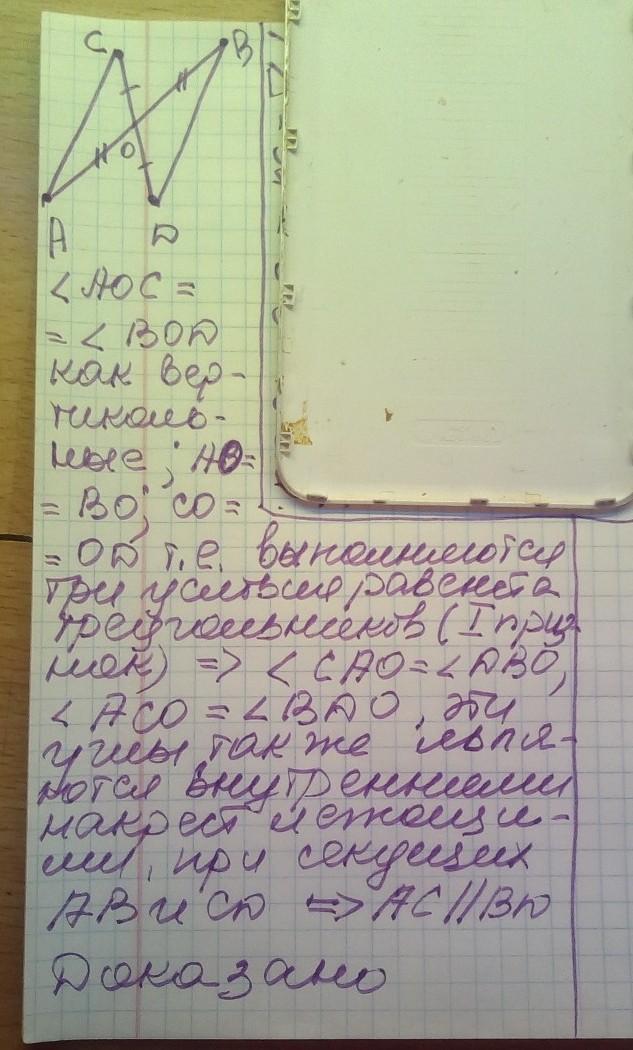 C B
O
A D
∠AOC =
= ∠BOD
как вер-
тикаль-
ные; AO=
= BO; CO =
= OD т.е. выполняются
три условия равенства
треугольников (I приз-
нак) => ∠CAO=∠DBO,
∠ACO = ∠BDO, эти
углы также явля-
ются внутренними
накрест лежащи-
ми, при секущих
AB и CD => AC//BD
Доказано